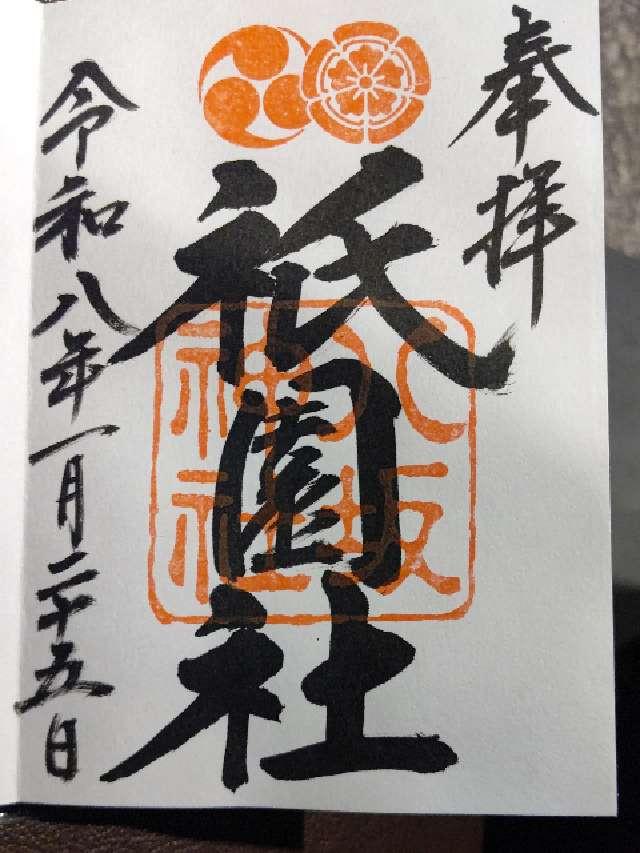 奉拝
祇園社
八坂神社
令和八年一月二十五日